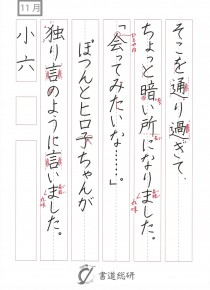 11月
そこを通り過ぎて、
ちょっと暗い所になりました。
「会ってみたいな……。」
ぽつんとヒロ子ちゃんが
独り言のように言いました。
小六
書道総研